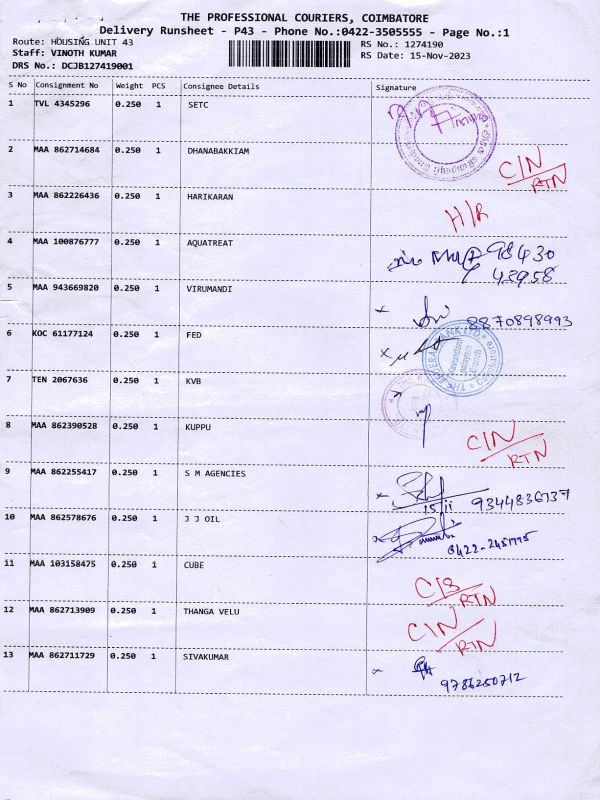 THE PROFESSIONAL COURIERS, COIMBATORE
Delivery Runsheet - P43 - Phone No.:0422-3505555 - Page No.:1
Route: HOUSING UNIT 43
RS No.: 1274190
Staff: VINOTH KUMAR
RS Date: 15-Nov-2023
DRS No.: DCJB127419001
S No Consignment No Weight PCS Consignee Details Signature
1 TVL 4345296 0.250 1 SETC
2 MAA 862714684 0.250 1 DHANABAKKIAM C/N RTN
3 MAA 862226436 0.250 1 HARIKARAN H/R
4 MAA 100876777 0.250 1 AQUATREAT 98430
42958
5 MAA 943669820 0.250 1 VIRUMANDI 8870898993
6 KOC 61177124 0.250 1 FED
7 TEN 2067636 0.250 1 KVB
8 MAA 862390528 0.250 1 KUPPU C/N RTN
9 MAA 862255417 0.250 1 S M AGENCIES 15.11 9344836737
10 MAA 862578676 0.250 1 J J OIL 0422-2451775
11 MAA 103158475 0.250 1 CUBE C/S RTN
12 MAA 862713909 0.250 1 THANGA VELU C/N RTN
13 MAA 862711729 0.250 1 SIVAKUMAR 9786250712